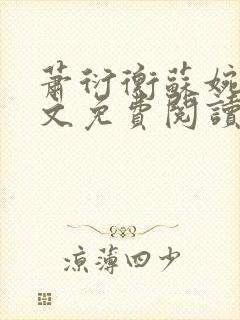 蕭衍衡蘇婉
文免費閱讀
涼薄四少